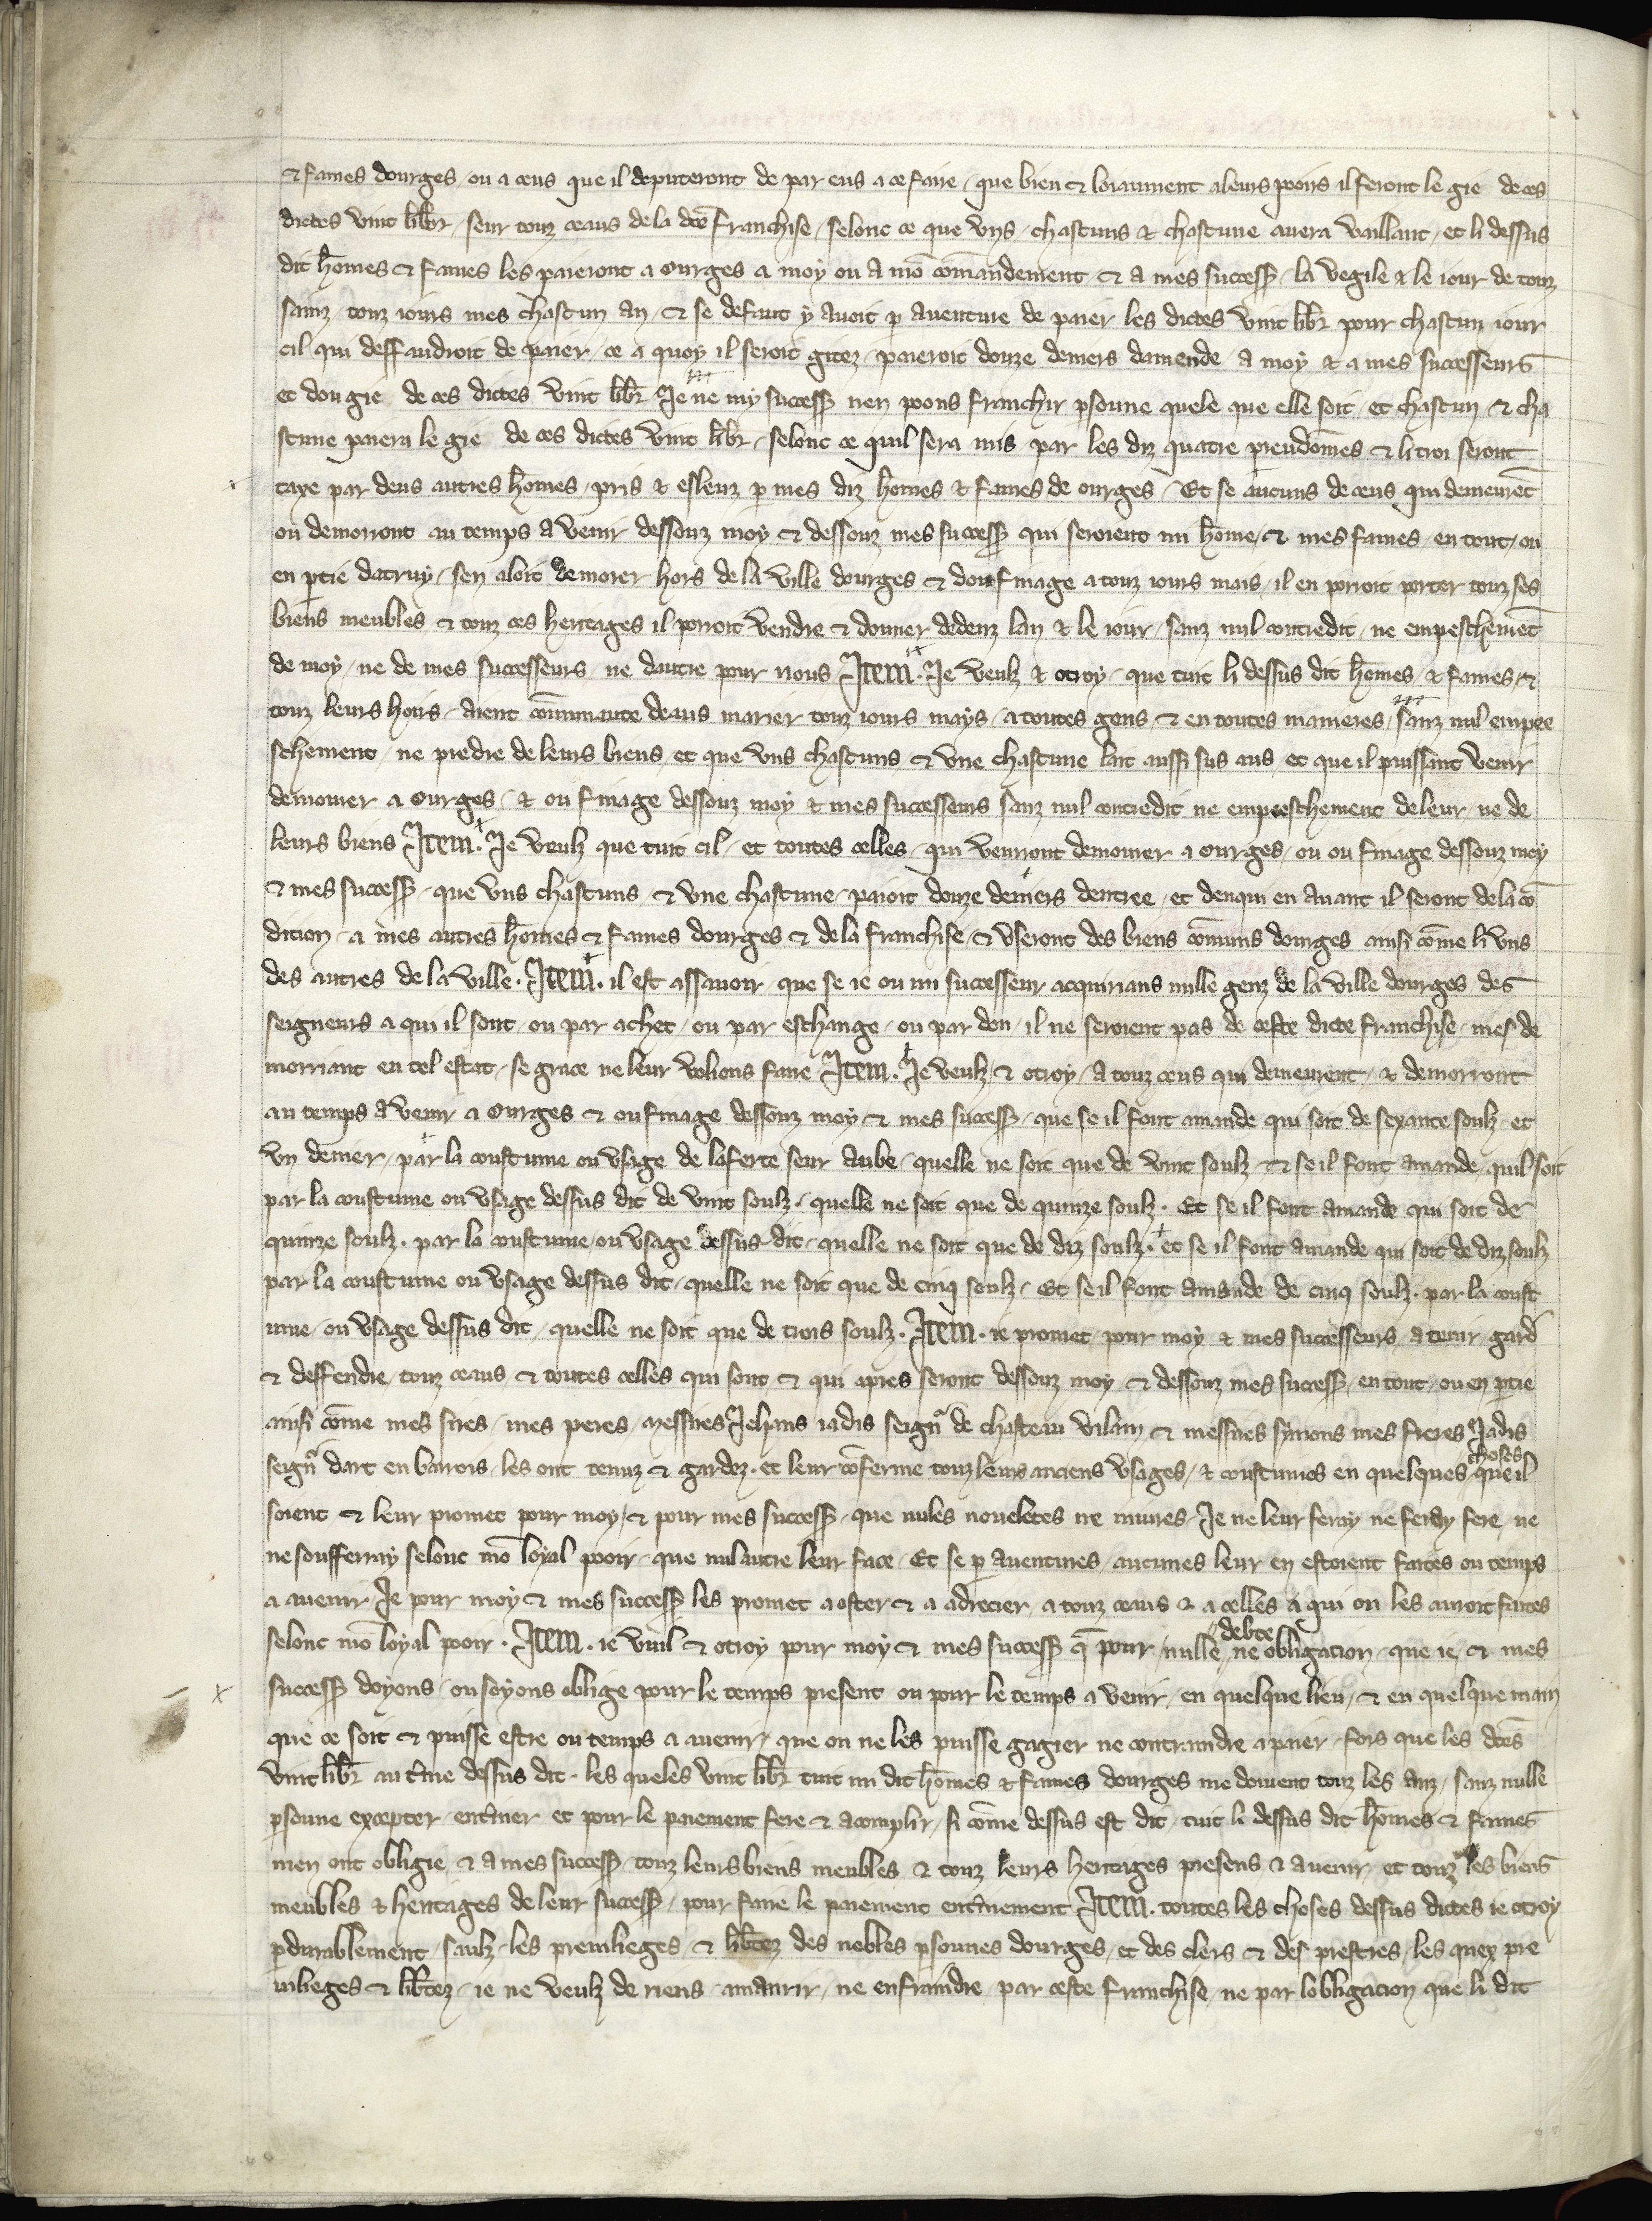 & fames dourges ou a ceus que il deputeront de par eus a ce faire / que bien & loiaument a leurs pooirs il feront le gié de ces
dictes vint lib̄r / seur touz ceaus de la dc̄e franchise / selonc ce que vns / chascuns & chascune auera vaillant / et li dessus
dit hōmes & fames les paieront a ourges a moy ou a mō cōmandement & a mes success̄ / la vegile & le iour de touz
sainz touz iours mes chascun an / & se defaut y auoit p̱ auenture de paier les dictes vint lib̄r pour chascun iour
cil qui deffaudroit de paier / ce a quoy il seroit gitez / paieroit douze deniers damende a moy & a mes successeurs
et dou gié de ces dictes vint lib̄r Je ne my success̄ nen poons franchir p̱sonne quele que elle soit / et chascun & cha
scune paiera le gié de ces dictes vint lib̄r / selonc ce quil sera mis par les diz quatre preudōmes & li troi seront
taxe par deus autres hōmes / pris & esleuz p̱ mes diz hōmes & fames de ourges / Et se aucuns de ceus qui demeurēt
ou demorront au temps a venir dessouz moy & dessouz mes success̄ qui seroient mi hōme / & mes fames / en tout / ou
en p̱tie datruy / sen aloit demorer hors de la ville dourges & dou finage a touz iours mais / il en porroit porter touz ses
biens meubles & touz ces heritages il porroit vendre & donner dedenz lan & le iour / sanz nul contredit / ne empeschemēt
de moy / ne de mes successeurs ne dautre pour nous Item. Je veulz & otroy / que tuit li dessus dit hōmes & fames / &
touz leurs hoirs / aient cōmmante deaus marier touz iours mays / a toutes gens & en toutes manieres / sanz nul empee
schement / ne predre de leurs biens / et que vns chascuns & vne chascune lait aussi sus aus / et que il puissint venir
demourer a ourges / & ou finage dessouz moy & mes successeurs sanz nul contredit ne empeeschement de leur / ne de
leurs biens Item. Je veulz que tuit cil / et toutes celles / qui venront demourer a ourges / ou ou finage dessouz moy
& mes success̄ / que vns chascuns & vne chascune / paioit douze deniers dentree / et denqui en auant il seront de la cō
dition / a mes autres hōmes & fames dourges & de la franchise / & vseront des biens cōmuns dourges ausi cōme li vns
des autres de la ville. Item. il est assauoir que se ie ou mi successeur acquirians nulle genz de la ville dourges des
seigneurs a qui il sont / ou par achet / ou par eschange / ou par don / il ne seroient pas de ceste dicte franchise / mes de
morriant en tel estat / se grace ne leur voliens faire Item. Je veulz & otroy / a touz ceus qui demeurent / & demorront
au temps a venir a ourges & ou finage dessouz moy & mes success̄ / que se il font amande qui soit de sexante soulz et
vn denier / par la coustume ou vsage de laferte seur aube / quelle ne soit que de vint soulz & se il font amande / quil soit
par la coustume ou vsage dessus dit de vint soulz / quelle ne soit que de quinze soulz. Et se il font amande qui soit de
quinze soulz. par la coustume / ou vsage dessus dit / quelle ne soit que de diz soulz. et se il font amande qui soit de diz soulz
par la coustume ou vsage dessus dit / quelle ne soit que de cinq soulz / Et se il font amande de cinq soulz. par la coust
ume / ou vsage dessus dit / quelle ne soit que de trois soulz. Item. ie promet / pour moy & mes successeurs a tenir gard̄
& deffendre touz ceaus & toutes celles qui sont & qui apres seront dessouz moy & dessouz mes success̄ / en tout / ou en p̱tie
ausi cōme mes sires / mes peres / messires Jehans iadis seignr̄ de chasteau vilain & messires symons mes freres Jadis
seignr̄ dart en barrois / les ont tenuz & gardez. et leur cōferme touz leurs anciens vsages / & coustumes en quelques choses que il
soient & leur promet pour moy / & pour mes success̄ / que nules noueletes ne iniures Je ne leur feray ne feray fere ne
ne soufferray selonc mō loyal pooir / que nul autre leur face / Et se p̱ auentures / aucunes leur en estoient faites ou temps
a auenir Je pour moy & mes success̄ les promet a oster & a adrecier / a touz ceaus & a celles a qui on les auroit faites
selonc mō loyal pooir. Item. ie vuil & otroy pour moy & mes success̄ q̄ pour nulle debte ne obligacion / que ie & mes
success̄ doyons / ou soyons oblige pour le temps present ou pour le temps a venir / en quelque lieu / & en quelque main
que ce soit & puisse estre ou temps a auenir / que on ne les puisse gagier ne contraindre a paier / fors que les dc̄es
vint lib̄r au t̄me dessus dit. les queles vint lib̄r tuit mi dit hōmes & fames dourges me doiuent touz les anz / sanz nulle
p̱sonne excepter / ent̄iner et pour le paiement fere & acomplir / si cōme dessus est dit / tuit li dessus dit hōmes & fames
men ont obligie & a mes success̄ / touz leurs biens meubles & touz leurs heritages presens & auenir / et touz les biens
meubles & heritages de leur success̄ / pour faire le paiement ent̄inement Item. toutes les choses dessus dictes ie otroy
p̱durablement / saulz les preuilieges / & lib̄tez des nobles p̱sonnes dourges / et des clers & des prestres / les quex pre
uilieges & lib̄tez / ie ne veulz de riens amanrir / ne enfraindre / par ceste franchise / ne par lobligacion que li dit